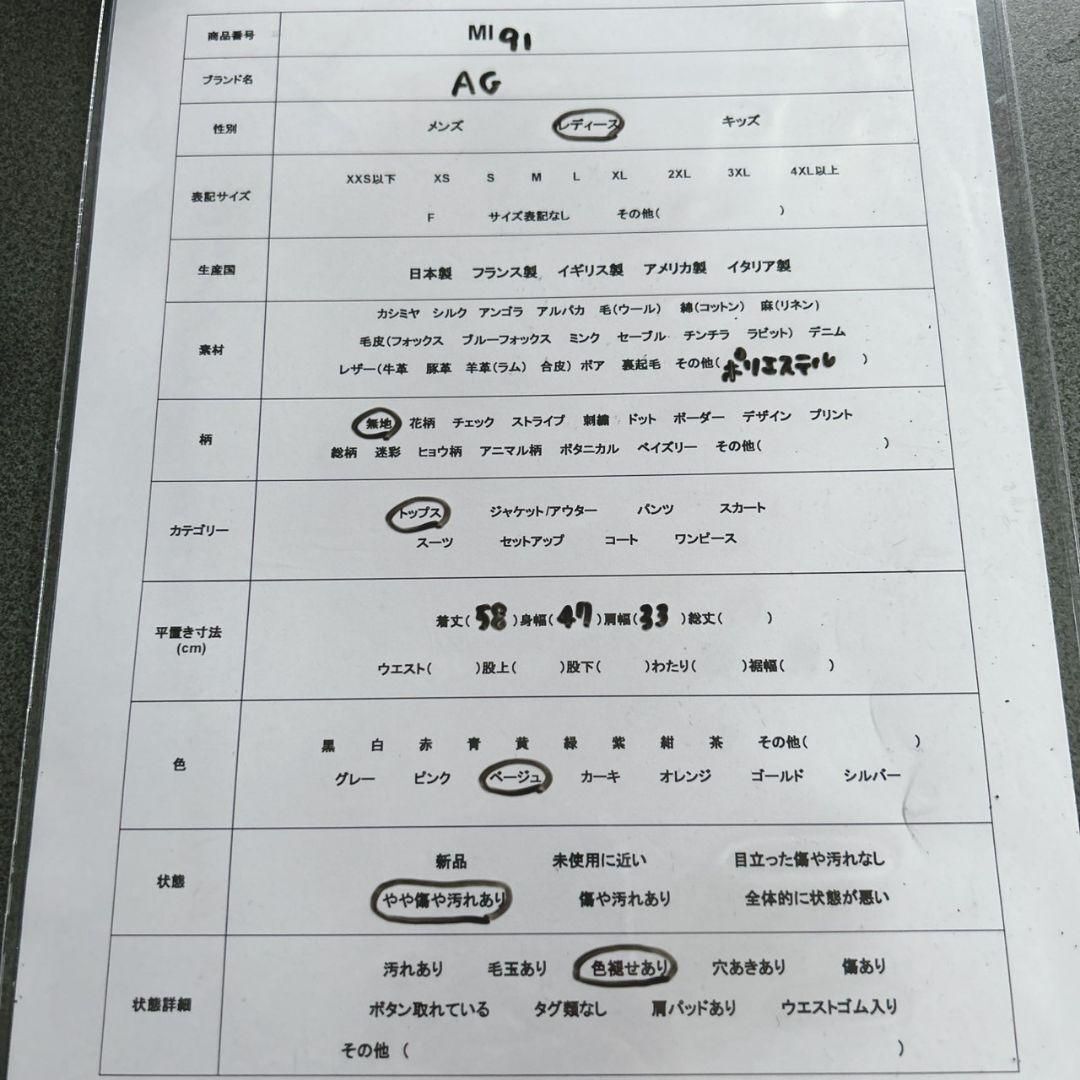 商品番号 MI 91
ブランド名 AG
性別 メンズ レディース キッズ
表記サイズ XXS以下 XS S M L XL 2XL 3XL 4XL以上
F サイズ表記なし その他( )
生産国 日本製 フランス製 イギリス製 アメリカ製 イタリア製
素材 カシミヤ シルク アンゴラ アルパカ 毛(ウール) 綿(コットン) 麻(リネン)
毛皮(フォックス ブルーフォックス ミンク セーブル チンチラ ラビット) デニム
レザー(牛革 豚革 羊革(ラム) 合皮) ボア 裏起毛 その他(ポリエステル )
柄 無地 花柄 チェック ストライプ 刺繍 ドット ボーダー デザイン プリント
総柄 迷彩 ヒョウ柄 アニマル柄 ボタニカル ペイズリー その他( )
カテゴリー トップス ジャケット/アウター パンツ スカート
スーツ セットアップ コート ワンピース
平置き寸法 (cm) 着丈(58)身幅(47)肩幅(33)総丈( )
ウエスト( )股上( )股下( )わたり( )裾幅( )
色 黒 白 赤 青 黄 緑 紫 紺 茶 その他( )
グレー ピンク ベージュ カーキ オレンジ ゴールド シルバー
状態 新品 未使用に近い 目立った傷や汚れなし
やや傷や汚れあり 傷や汚れあり 全体的に状態が悪い
状態詳細 汚れあり 毛玉あり 色褪せあり 穴あきあり 傷あり
ボタン取れている タグ類なし 肩パッドあり ウエストゴム入り
その他 ( )